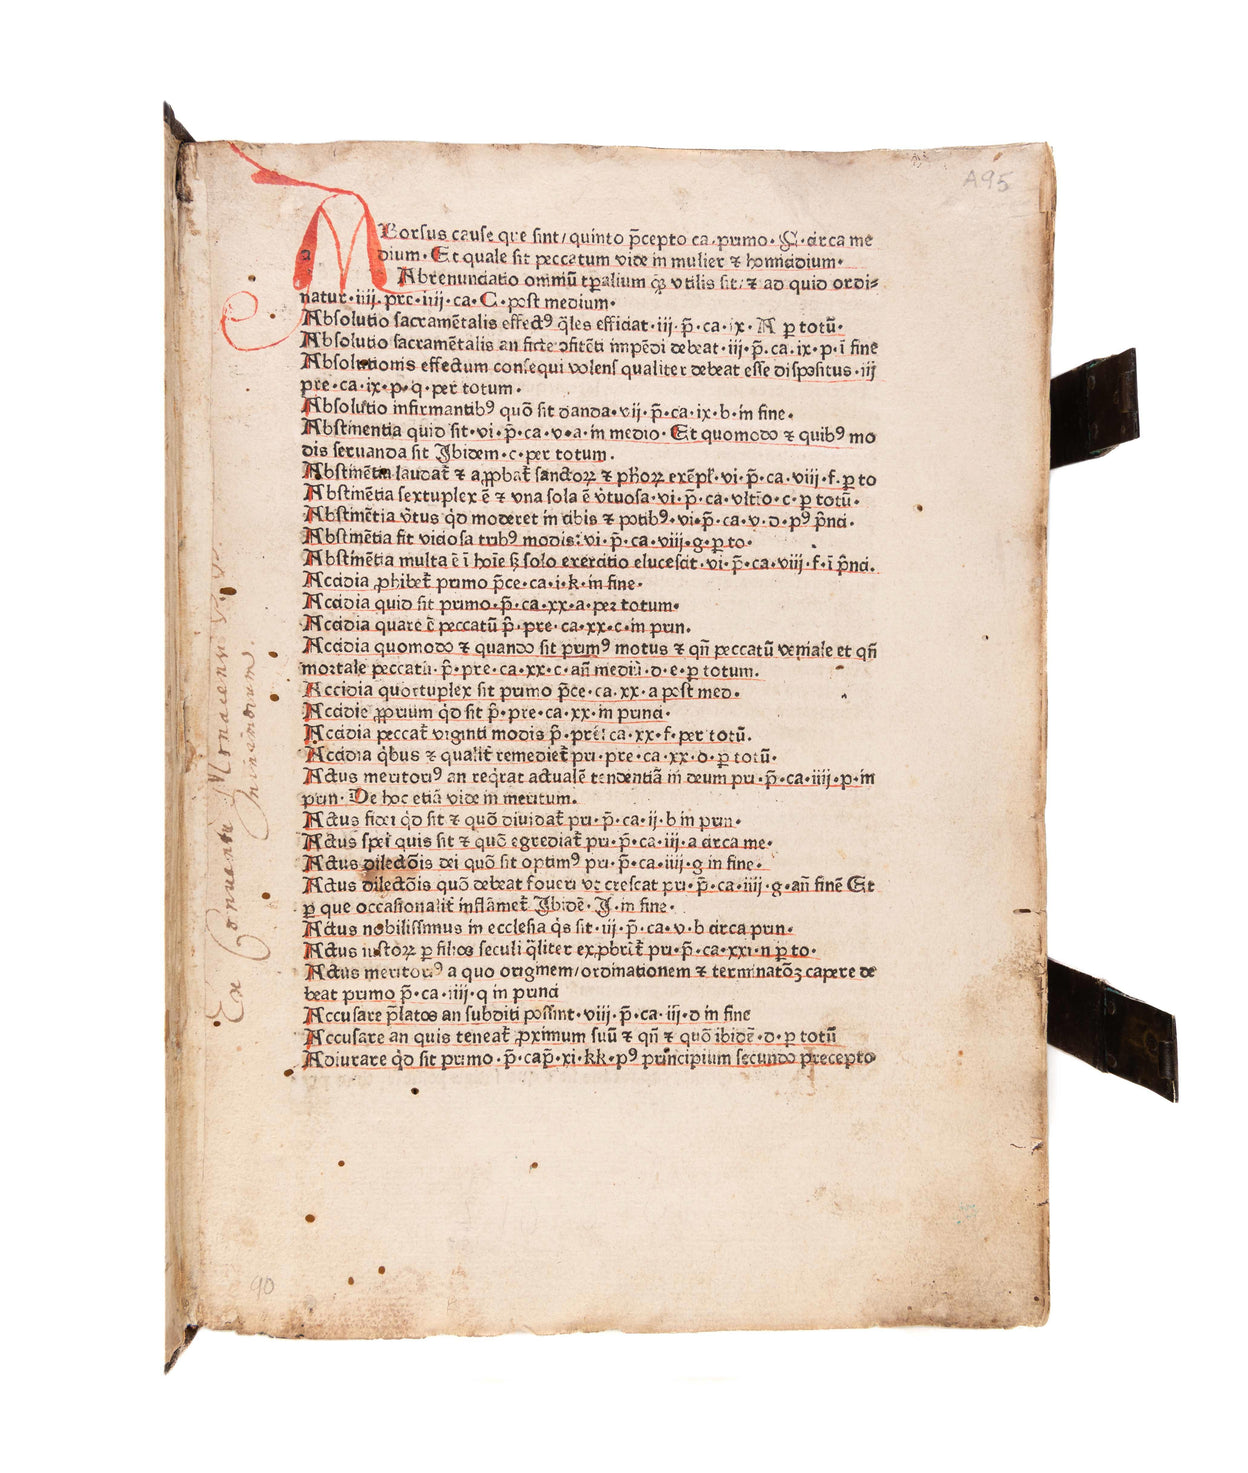 A95
ABorsus cause que sint / quinto p̄cepto ca. primo · C · circa me
dium · Et quale sit peccatum vide in mulier ⁊ homicidium ·
Abrenunciatio omniū tp̄alium q̄ vtilis sit / ⁊ ad quid ordi⸗
natur · iiii · pre · iiij · ca · C · post medium ·
Absolutio sacramētalis effectꝰ q̄les efficiat · iii · p̄ · ca · ix · A ꝑ totū ·
Absolutio sacramētalis an ficte ↄfitēti impēdi debeat · iij · p̄ · ca · ix · p · ī fine
Absolutionis effectum consequi volens qualiter debeat esse dispositus · iij
pre · ca · ix · p · q · per totum ·
Absolutio infirmantibꝰ quō sit danda · vij · p̄ · ca · ix · b · in fine ·
Abstinentia quid sit · vi · p̄ · ca · v · a · in medio · Et quomodo ⁊ quibꝰ mo
dis seruanda sit Ibidem · c · per totum ·
Abstinētia laudat̄ ⁊ aꝓbat̄ sanctoꝝ ⁊ ph̄oꝝ exēpl̄ · vi · p̄ · ca · viii · f · ꝑ to
Abstinētia sextuplex ē ⁊ vna sola ē v̄tuosa · vi · p̄ · ca · vltīo · c · ꝑ totū ·
Abstinētia v̄tus q̇d moderet in cibis ⁊ potibꝰ · vi · p̄ · ca · v · d · pꝰ p̄nci ·
Abstinētia fit viciosa tribꝰ modis : vi · p̄ · ca · viij · g · ꝑ to ·
Abstinētia multa ē ī hoīe sꝫ solo exercitio elucescit · vi · p̄ · ca · viij · f · ī p̄nci ·
Accidia ꝓhibet̄ primo p̄ce · ca · i · k · in fine ·
Accidia quid sit primo · p̄ · ca · xx · a · per totum ·
Accidia quare ē peccatū p̄ · pre · ca · xx · c · in prin ·
Accidia quomodo ⁊ quando sit primꝰ motus ⁊ qn̄ peccatū veniale et qn̄
mortale peccatū · p̄ · pre · ca · xx · c · an̄ mediū · d · e · ꝑ totum ·
Accidia quottuplex sit primo p̄ce · ca · xx · a post med ·
Accidie ꝓprium q̇d sit p̄ · pre · ca · xx · in princi ·
Accidia peccat̄ viginti modis p̄ · pre · ca · xx · f · per totū ·
Accidia q̇bus ⁊ qualit̄ remediet̄ pri · pre · ca · xx · d · ꝑ totū ·
Actus meritoriꝰ an req̇rat actualē tendentiā in deum pri · p̄ · ca · iiii · p · in
prin · De hoc etiā vide in meritum ·
Actus fidei q̇d sit ⁊ quō diuidat̄ pri · p̄ · ca · ij · b in prin ·
Actus spei quis sit ⁊ quō egrediat̄ pri · p̄ · ca · iii · a circa me ·
Actus dilectōis dei quō sit optimꝰ pri · p̄ · ca · iiii · g in fine ·
Actus dilectōis quō debeat foueri vt crescat pri · p̄ · ca · iiii · g · an̄ finē Et
ꝑ que occasionalit̄ inflāmet̄ Ibidē · I · in fine ·
Actus nobilissimus in ecclesia q̇s sit · iij · p̄ · ca · v · b circa prin ·
Actus iustoꝝ ꝑ filios seculi q̄liter exꝓbrit̄ pri · p̄ · ca · xxi · n ꝑ to ·
Actus meritoriꝰ a quo originem / ordinationem ⁊ terminatōꝫ capere de
beat primo p̄ · ca · iiii · q in princi
Accusare p̄latos an subditi possint · viij · p̄ · ca · iij · d in fine
Accusare an quis teneat̄ ꝓximum suū ⁊ qn̄ ⁊ quō ibidē · d · ꝑ totū
Adiurare q̇d sit primo · p̄ · cap̄ · xi · kk · pꝰ principium secundo precepto
Ex Conuentu Monacensi
90